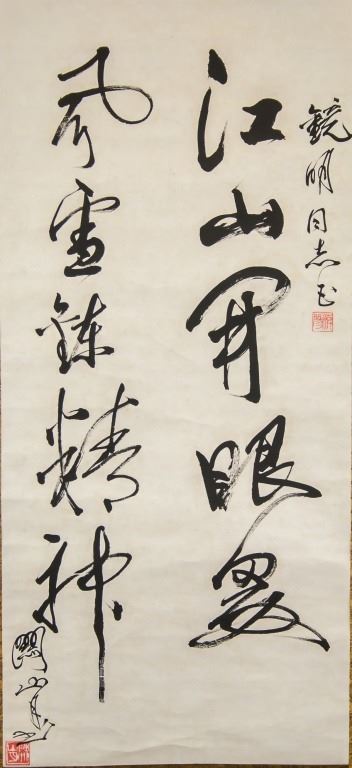 鏡明同志正
江山開眼界
風雪鍊精神
關山月